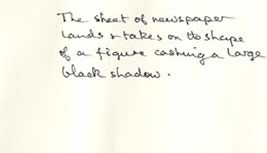 The sheet of newspaper
lands & takes on the shape
of a figure casting a large
black shadow.